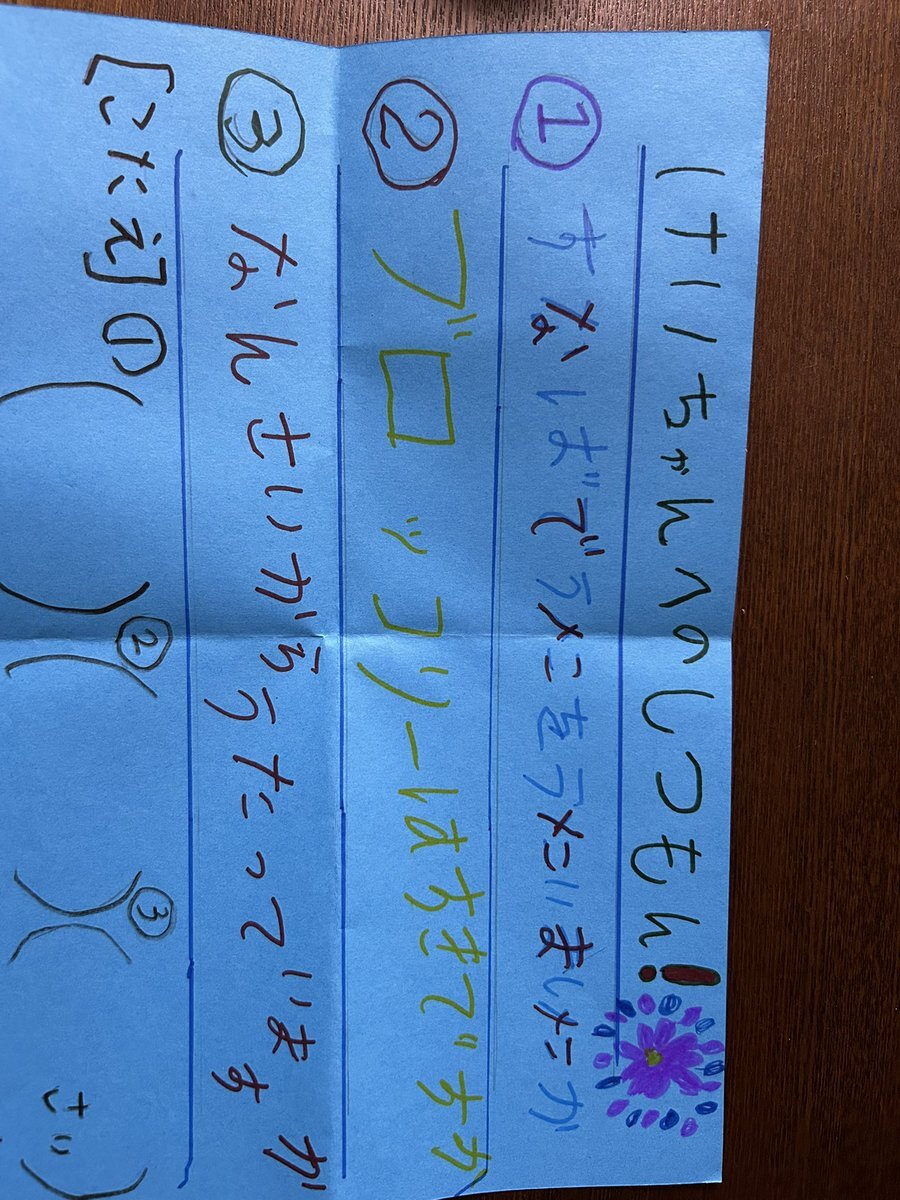 けいちゃんへのしつもん!
① すなばでうたをうたいましたか
② ブロッコリーはすきですか
③ なんさいからうたっていますか
[こたえ] ① ( ) ② ( ) ③ ( さい)